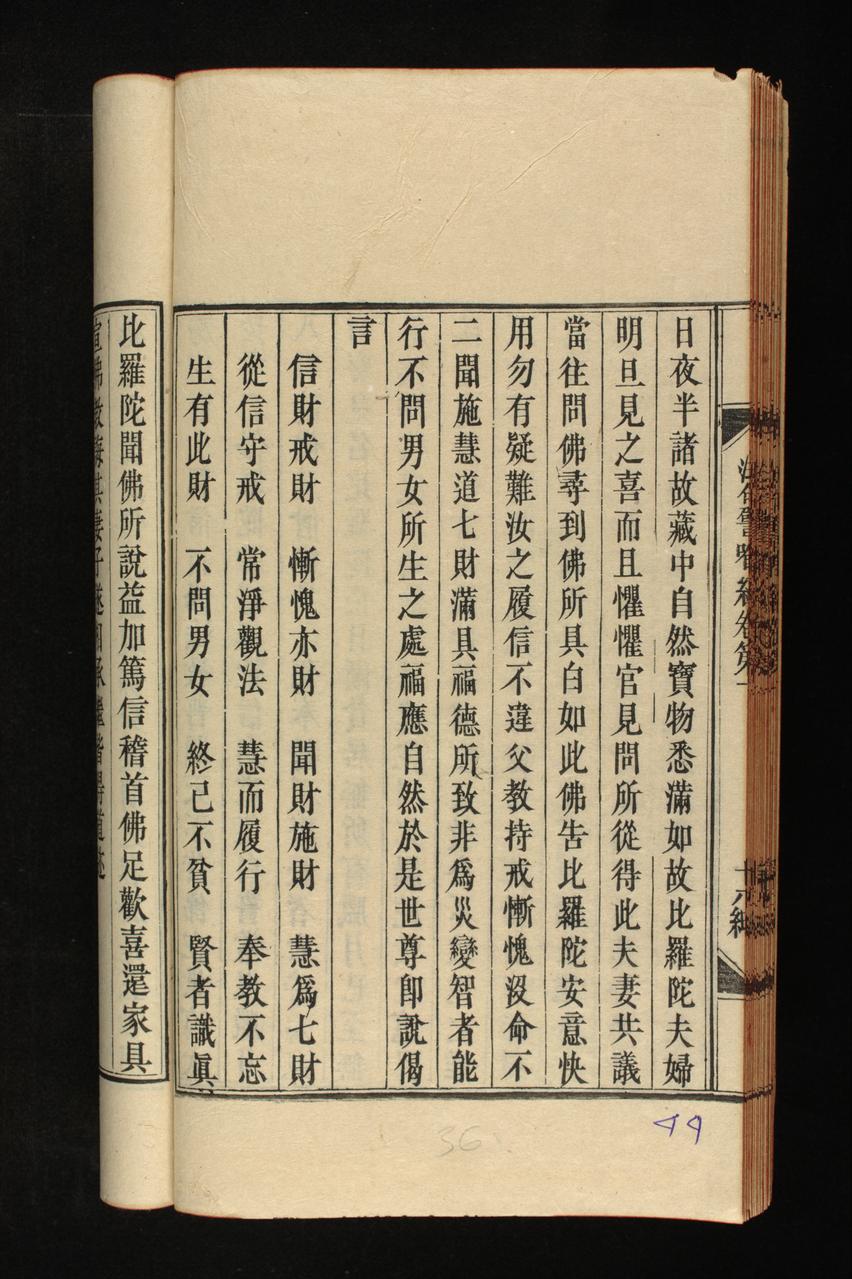 日夜半諸故藏中自然寶物悉滿如故比羅陀夫婦
明旦見之喜而且懼懼官見問所從得此夫妻共議
當往問佛尋到佛所具白如此佛告比羅陀安意快
用勿有疑難汝之履信不違父教持戒慚愧沒命不
二聞施慧道七財滿具福德所致非爲災變智者能
行不問男女所生之處福應自然於是世尊卽說偈
言
信財戒財　慚愧亦財　聞財施財　慧爲七財
從信守戒　常淨觀法　慧而履行　奉教不忘
生有此財　不問男女　終已不貧　賢者識眞
比羅陀聞佛所說益加篤信稽首佛足歡喜還家具
宣佛教誨其妻子
法句譬喻經卷第一
十六
36
44